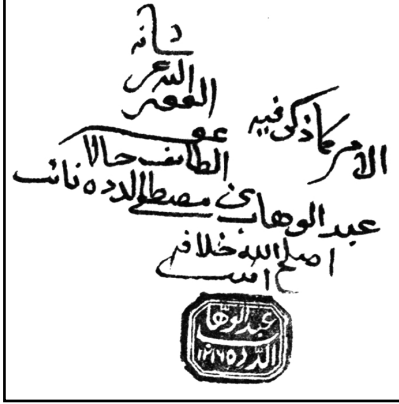 الامر كما ذكر فيه
الفقير
اليه عز
شانه
عبد الوهاب بن مصطفى الدده نائب
الطائف حالا
اصلح الله
عبد الوهاب
الدده ١٢١٦